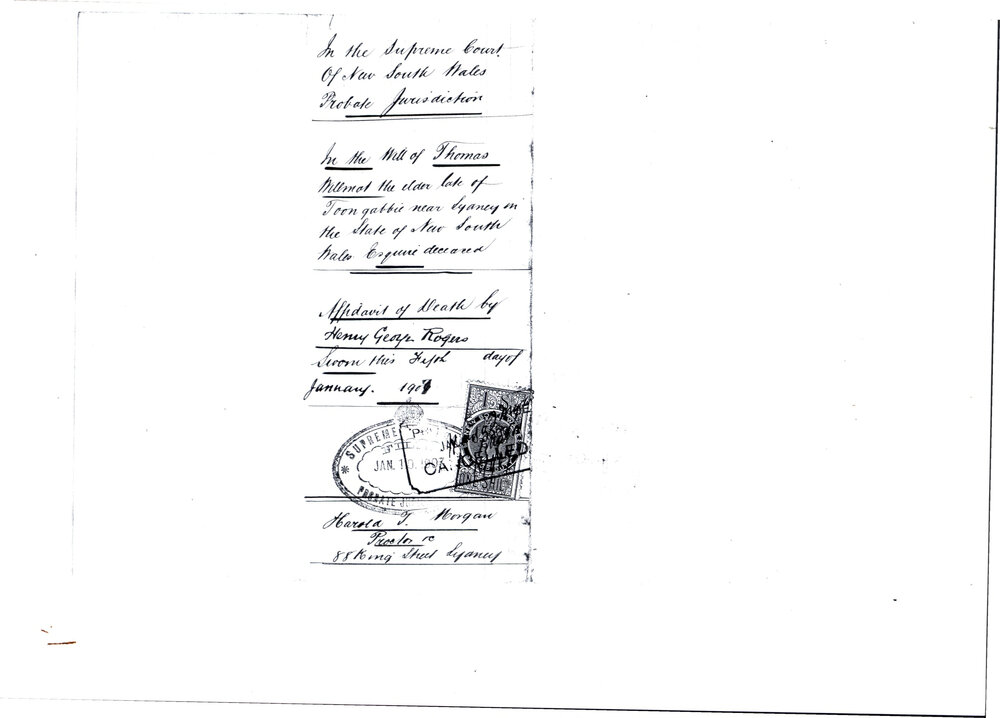 In the Supreme Court
Of New South Wales
Probate Jurisdiction
In the Will of Thomas
Willmot the elder late of
Toongabbie near Sydney in
the State of New South
Wales Esquire deceased
Affidavit of Death by
Henry George Rogers
Sworn this Fifth day of
January. 1907
SUPREME
JAN. 10. 1907
PROBATE
ONE SHIL
Harold T. Morgan
Proctor &c
88 King Street Sydney